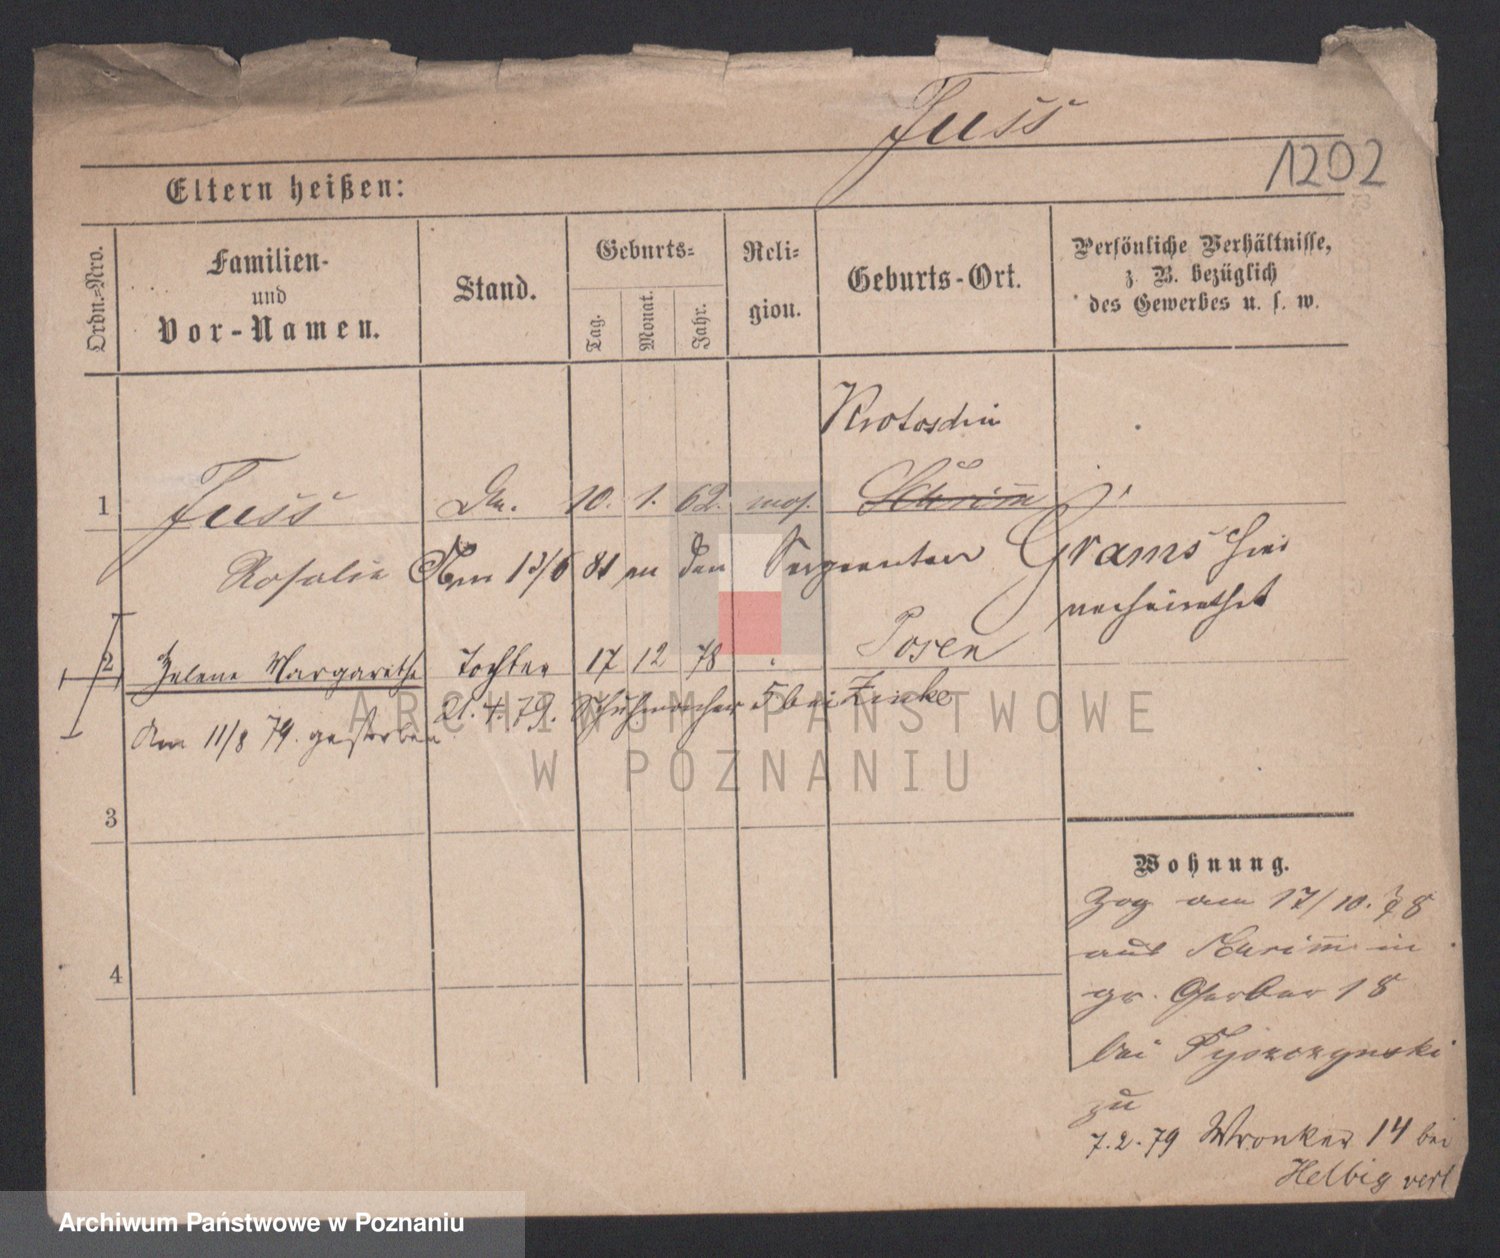 Fuss
1202
Eltern heißen:
Ordn.-Nro.
Familien-
und
Vor-Namen.
Stand.
Geburts-
Tag.
Monat.
Jahr.
Reli-
gion.
Geburts-Ort.
Persönliche Verhältnisse,
z. B. bezüglich
des Gewerbes u. s. w.
Krotoschin
1 Fuss 10. 1. 62. mos. Schrimm
Rosalie Am 13/6 81 an den Sergeanten Grams hier
verheirathet
2 Helene Margarethe Tochter 17 12 78 Posen
21. 4. 79. Schuhmacher 5 bei Zinke
Am 11/8 79. gestorben
3
4
Wohnung.
Zog am 17/10. 78
aus Schrimm in
gr. Gerber 18
bei
zu
7.2.79 Wronker 14 bei
Helbig verl
ARCHIWUM PAŃSTWOWE
W POZNANIU
Archiwum Państwowe w Poznaniu